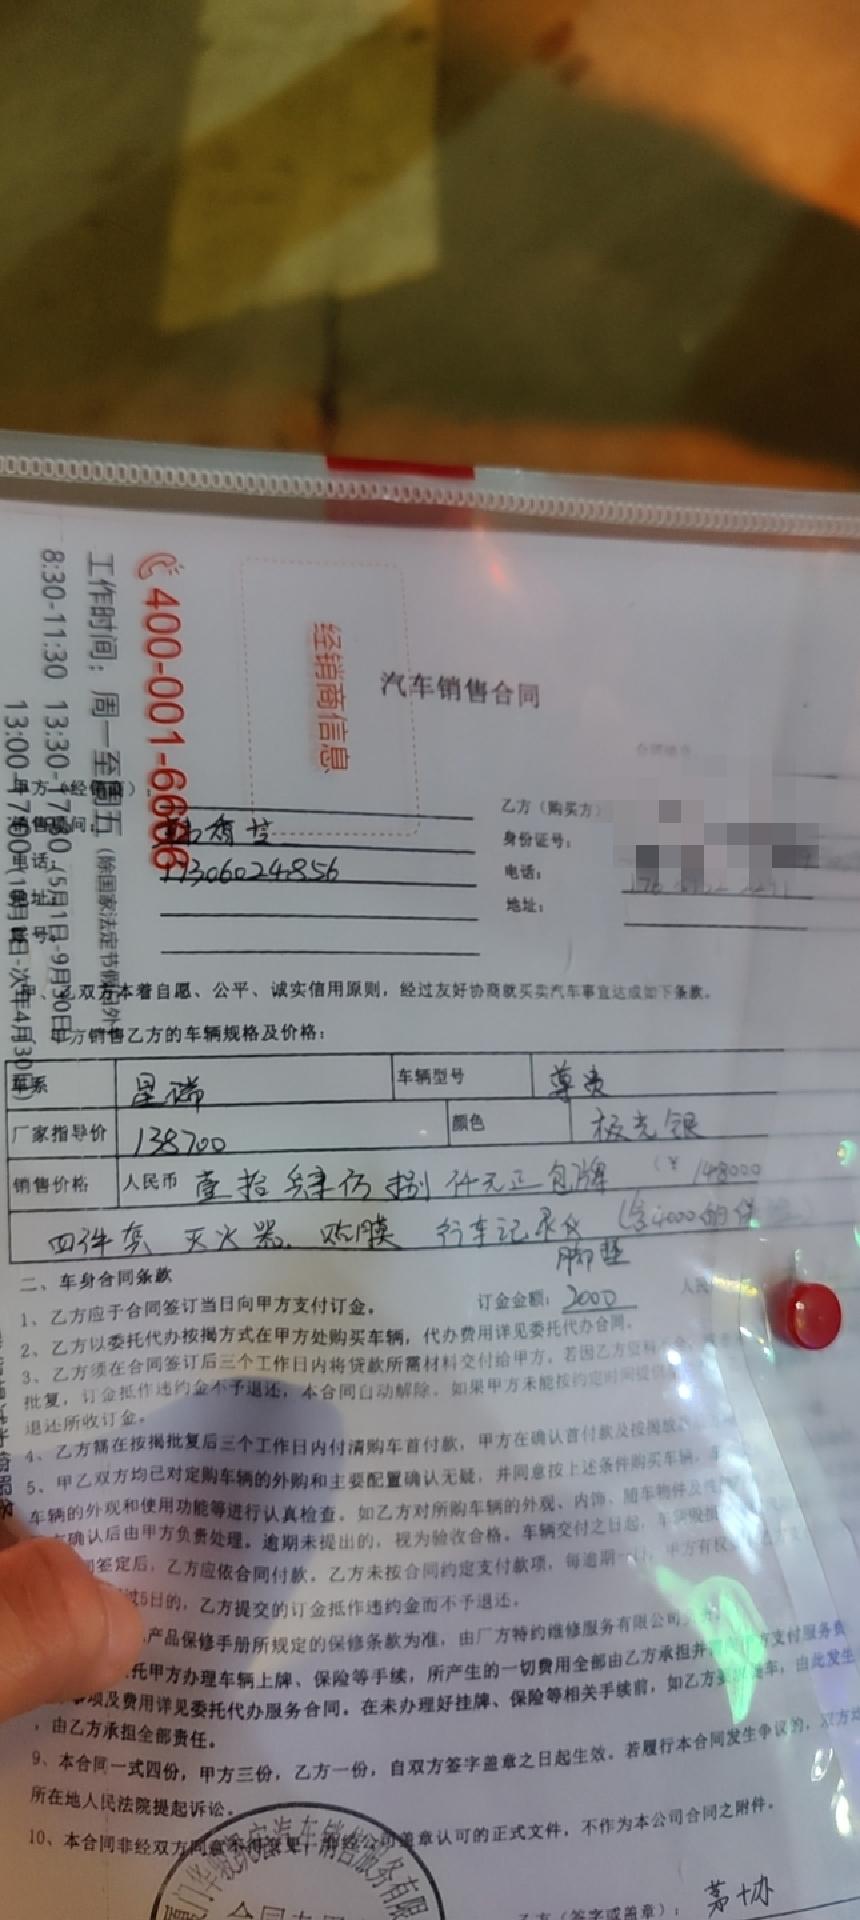 400-001-6666
工作时间：周一至周五（除国家法定节假日外）
8:30-11:30 13:30-17:30（5月1日-9月30日）
13:00-17:00（10月1日-次年4月30日）
经销商信息
汽车销售合同
甲方（经销商）：
乙方（购买方）
销售顾问：
身份证号：
电话：
电话：
地址：
地址：
账号：
甲、乙双方本着自愿、公平、诚实信用原则，经过友好协商就买卖汽车事宜达成如下条款。
甲方销售乙方的车辆规格及价格：
车系 星瑞 车辆型号 尊贵
厂家指导价 138700 颜色 极光银
销售价格 人民币 壹拾肆万捌仟元正包牌（¥148000
四件套 灭火器 贴膜 行车记录仪（含4000的保险）
脚垫
二、车身合同条款
1、乙方应于合同签订当日向甲方支付订金。 订金金额：2000 人民
2、乙方以委托代办按揭方式在甲方处购买车辆，代办费用详见委托代办合同。
3、乙方须在合同签订后三个工作日内将贷款所需材料交付给甲方，若因乙方资料
批复，订金抵作违约金不予退还，本合同自动解除。如果甲方未能按约定时间提供
退还所收订金。
4、乙方需在按揭批复后三个工作日内付清购车首付款，甲方在确认首付款及按揭放
5、甲乙双方均已对定购车辆的外购和主要配置确认无疑，并同意按上述条件购买车辆，
车辆的外观和使用功能等进行认真检查。如乙方对所购车辆的外观、内饰、随车物件及
方确认后由甲方负责处理。逾期未提出的，视为验收合格。车辆交付之日起，车辆毁
同签定后，乙方应依合同付款。乙方未按合同约定支付款项，每逾期一日，甲方有权
过5日的，乙方提交的订金抵作违约金而不予退还。
产品保修手册所规定的保修条款为准，由厂方特约维修服务有限公司
托甲方办理车辆上牌、保险等手续，所产生的一切费用全部由乙方承担并 方支付服务费
项及费用详见委托代办服务合同。在未办理好挂牌、保险等相关手续前，如乙方 车，由此发生
，由乙方承担全部责任。
9、本合同一式四份，甲方三份，乙方一份，自双方签字盖章之日起生效。若履行本合同发生争议的，双方
所在地人民法院提起诉讼。
10、本合同非经双方同意不得变更，需经公司盖章认可的正式文件，不作为本公司合同之附件。
汽车销售服务有限
乙方（签字或盖章）：